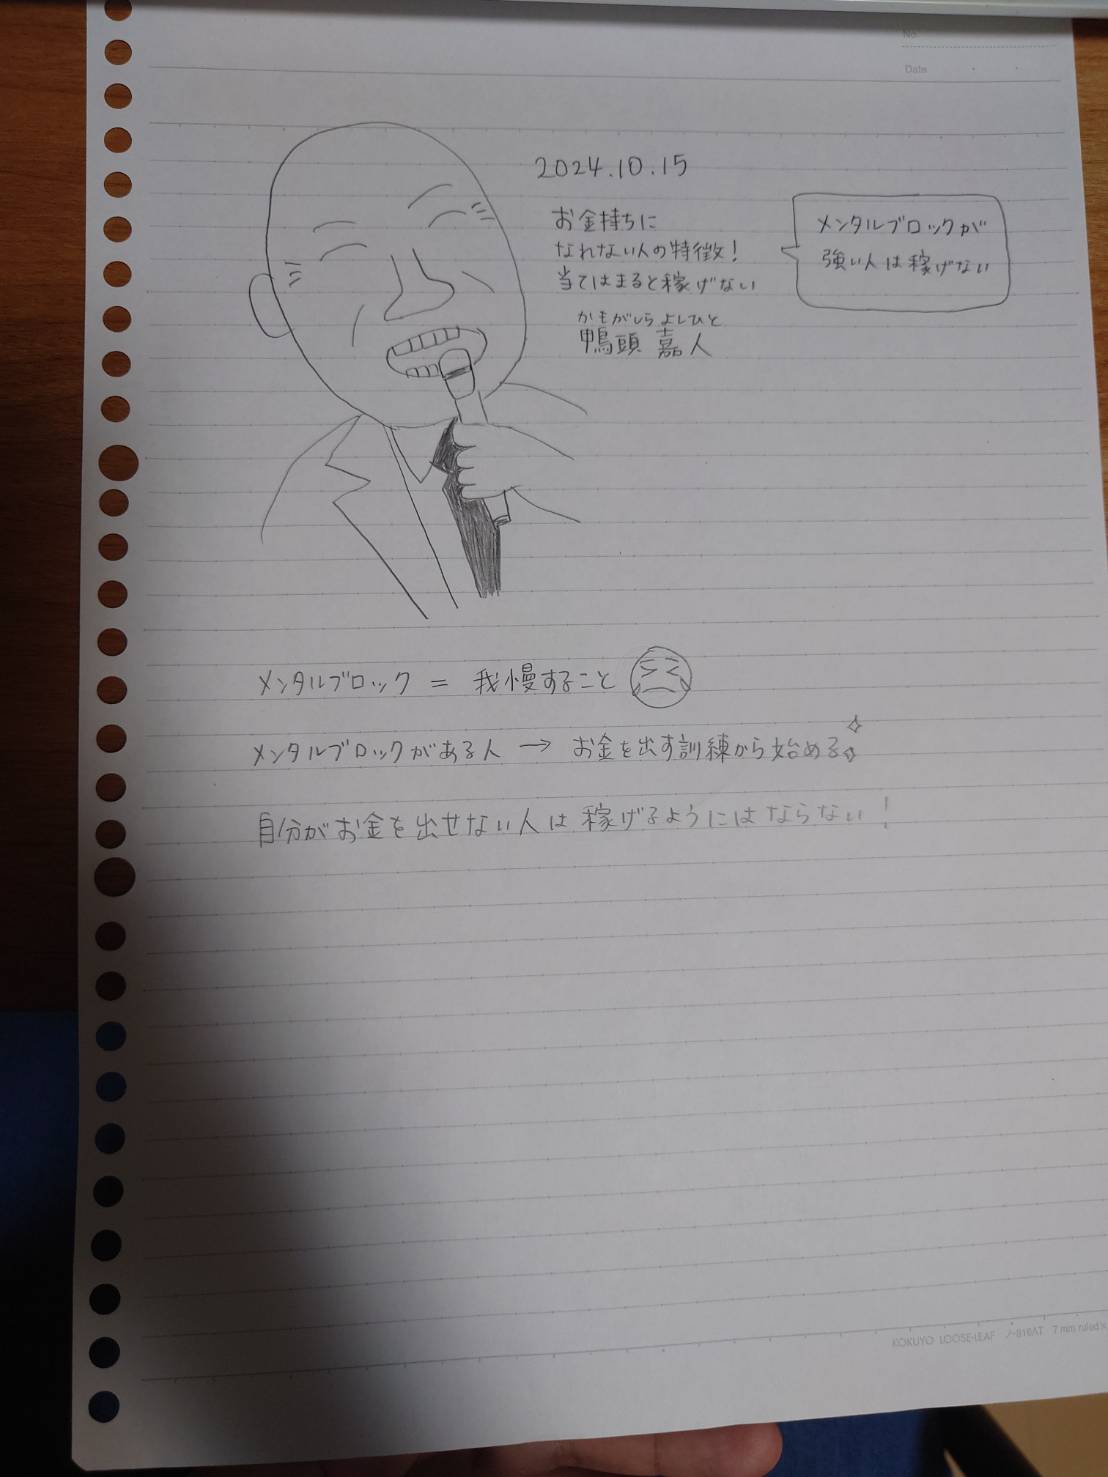 No.
Date
2024.10.15
お金持ちに
なれない人の特徴！
当てはまると稼げない
かもがしら よしひと
鴨頭 嘉人
メンタルブロックが
強い人は稼げない
メンタルブロック = 我慢すること
メンタルブロックがある人 → お金を出す訓練から始める
自分がお金を出せない人は稼げるようにはならない！
KOKUYO LOOSE-LEAF ノ-816AT 7 mm ruled